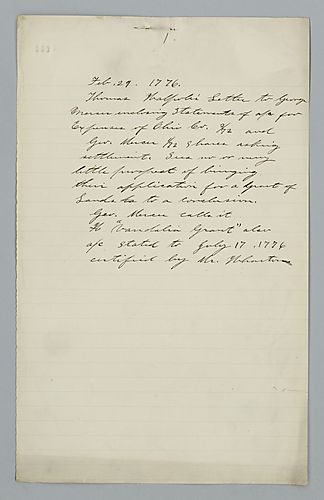 1
Feb. 29. 1776.
Thomas Walpole's Letter to George
Mercer enclosing Statements of a/c for
Expenses of Ohio Co. 2/72 and
Geo. Mercer 1/72 shares asking
settlement. Sees no or very
little prospect of bringing
their application for a Grant of
Lands &c to a conclusion.
Geo. Mercer calls it
the "Vandalia Grant" also
a/c stated to July 17, 1776
certified by Mr. Wharton